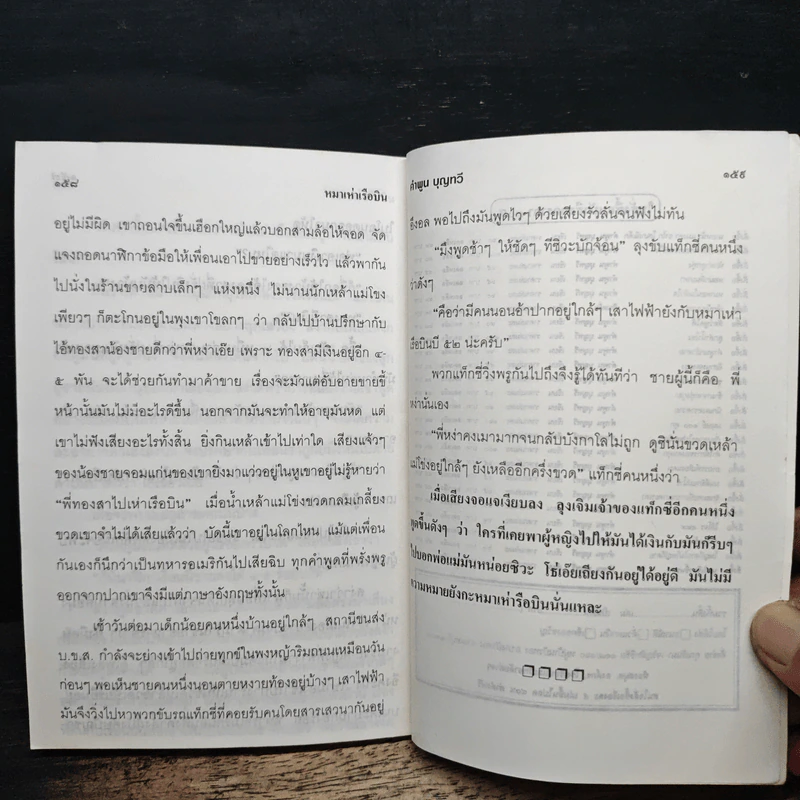 ๑๕๘
หมาเห่าเรือบิน
อยู่ไม่มีผิด เขาถอนใจขึ้นเฮือกใหญ่แล้วบอกสามล้อให้จอด จัด
แจงถอดนาฬิกาข้อมือให้เพื่อนเอาไปขายอย่างเร็วไว แล้วพากัน
ไปนั่งในร้านขายลาบเล็กๆ แห่งหนึ่ง ไม่นานนักเหล้าแม่โขง
เพียวๆ ก็ตะโกนอยู่ในพุงเขาโขลกๆ ว่า กลับไปบ้านปรึกษากับ
ไอ้ทองสาน้องชายดีกว่าพี่หง่าเอ๊ย เพราะ ทองสามีเงินอยู่อีก ๔-
๕ พัน จะได้ช่วยกันทำมาค้าขาย เรื่องจะมัวแต่อับอายขายขี้
หน้านั้นมันไม่มีอะไรดีขึ้น นอกจากมันจะทำให้อายุมันหด แต่
เขาไม่ฟังเสียงอะไรทั้งสิ้น ยิ่งกินเหล้าเข้าไปเท่าใด เสียงแจ้วๆ
ของน้องชายจอมแก่นของเขายิ่งมาแว่วอยู่ในหูเขาอยู่ไม่รู้หายว่า
“พี่ทองสาไปเห่าเรือบิน” เมื่อน้ำเหล้าแม่โขงขวดกลมเกลี้ยง
ขวดเขาจำไม่ได้เสียแล้วว่า บัดนี้เขาอยู่ในโลกไหน แม้แต่เพื่อน
กันเองก็นึกว่าเป็นทหารอเมริกันไปเสียฉิบ ทุกคำพูดที่พรั่งพรู
ออกจากปากเขาจึงมีแต่ภาษาอังกฤษทั้งนั้น
เช้าวันต่อมาเด็กน้อยคนหนึ่งบ้านอยู่ใกล้ๆ สถานีขนส่ง
บ.ข.ส. กำลังจะย่างเข้าไปถ่ายทุกข์ในพงหญ้าริมถนนเหมือนวัน
ก่อนๆ พอเห็นชายคนหนึ่งนอนตายหงายท้องอยู่บ้างๆ เสาไฟฟ้า
มันจึงวิ่งไปหาพวกขับรถแท็กซี่ที่คอยรับคนโดยสารเสวนากันอยู่
คำพูน บุญทวี
๑๕๙
อึงอล พอไปถึงมันพูดไวๆ ด้วยเสียงรัวลั่นจนฟังไม่ทัน
“มึงพูดช้าๆ ให้ชัดๆ ทีซิวะบักจ้อน” ลุงขับแท็กซี่คนหนึ่ง
ว่าดังๆ
“คือว่ามีคนนอนอ้าปากอยู่ใกล้ๆ เสาไฟฟ้ายังกับหมาเห่า
เรือบินบี ๕๒ น่ะครับ”
พวกแท็กซี่วิ่งพรูกันไปถึงจึงรู้ได้ทันทีว่า ชายผู้นี้ก็คือ พี่
หง่านั่นเอง
“พี่หง่าคงเมามากจนกลับบังกาโลไม่ถูก ดูซินั่นขวดเหล้า
แม่โขงอยู่ใกล้ๆ ยังเหลืออีกครึ่งขวด” แท็กซี่คนหนึ่งว่า
เมื่อเสียงจอแจเงียบลง ลุงเจิมเจ้าของแท็กซี่อีกคนหนึ่ง
พูดขึ้นดังๆ ว่า ใครที่เคยพาผู้หญิงไปให้มันได้เงินกับมันก็รีบๆ
ไปบอกพ่อแม่มันหน่อยซิวะ โธ่เอ๊ยเถียงกันอยู่ได้อยู่ดี มันไม่มี
ความหมายยังกะหมาเห่าเรือบินนั่นแหละ